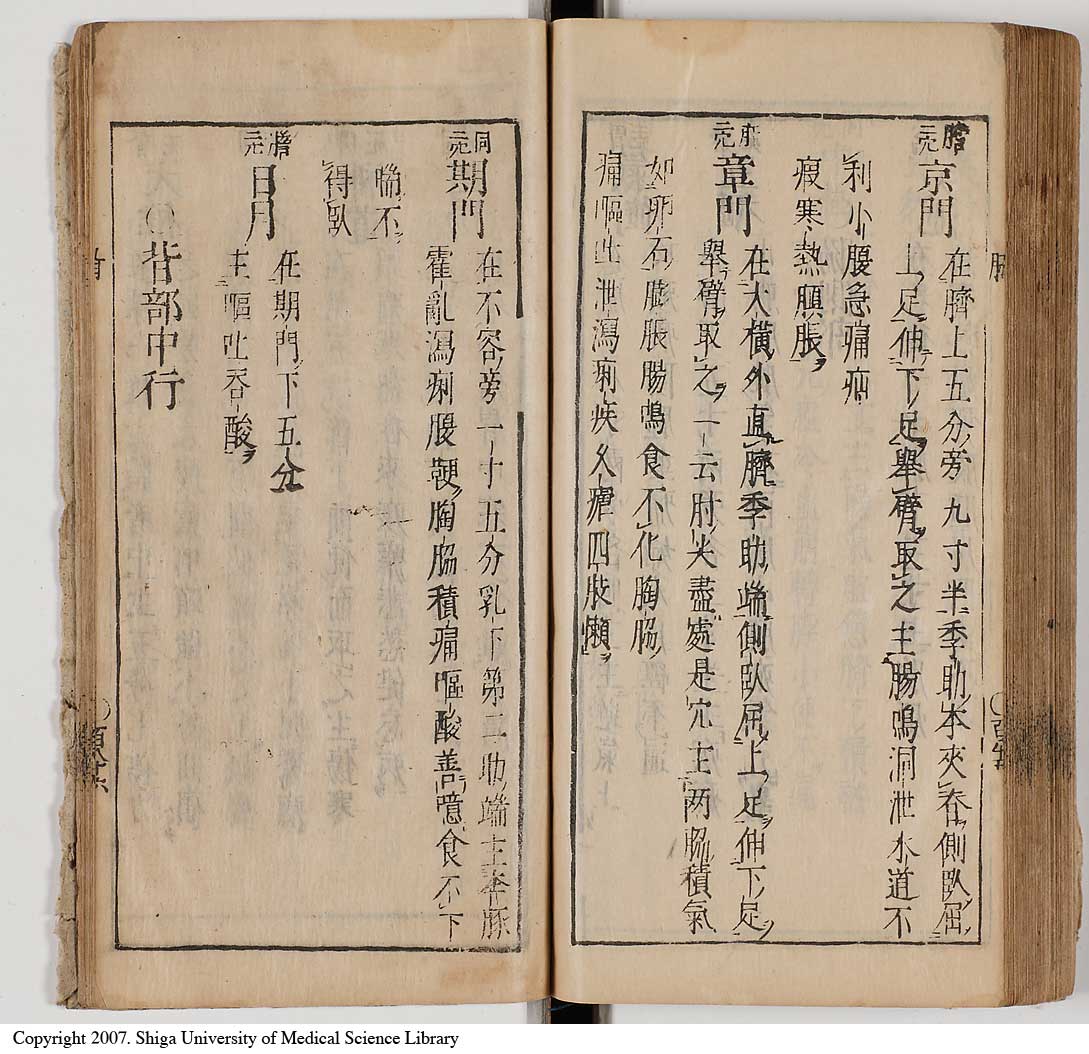 膽穴
京門
在臍上五分旁九寸半季肋本夾脊側臥屈
上足伸下足舉臂取之主腸鳴洞泄水道不
利小腹急痛
寒熱䐜脹
章門
在大橫外直臍季肋端側臥屈上足伸下足
舉臂取之一云肘尖盡處是穴主两脇積氣
如卵石膨脹腸鳴食不化胸脇
痛嘔吐泄瀉痢疾久瘧四肢懶
同穴
期門
在不容旁一寸五分乳下第二肋端主奔豚
霍亂瀉痢腹鞕胸脇積痛嘔酸善噫食不下
喘不
得臥
膽穴
日月
在期門下五分
主嘔吐吞酸
○背部中行
Copyright 2007. Shiga University of Medical Science Library